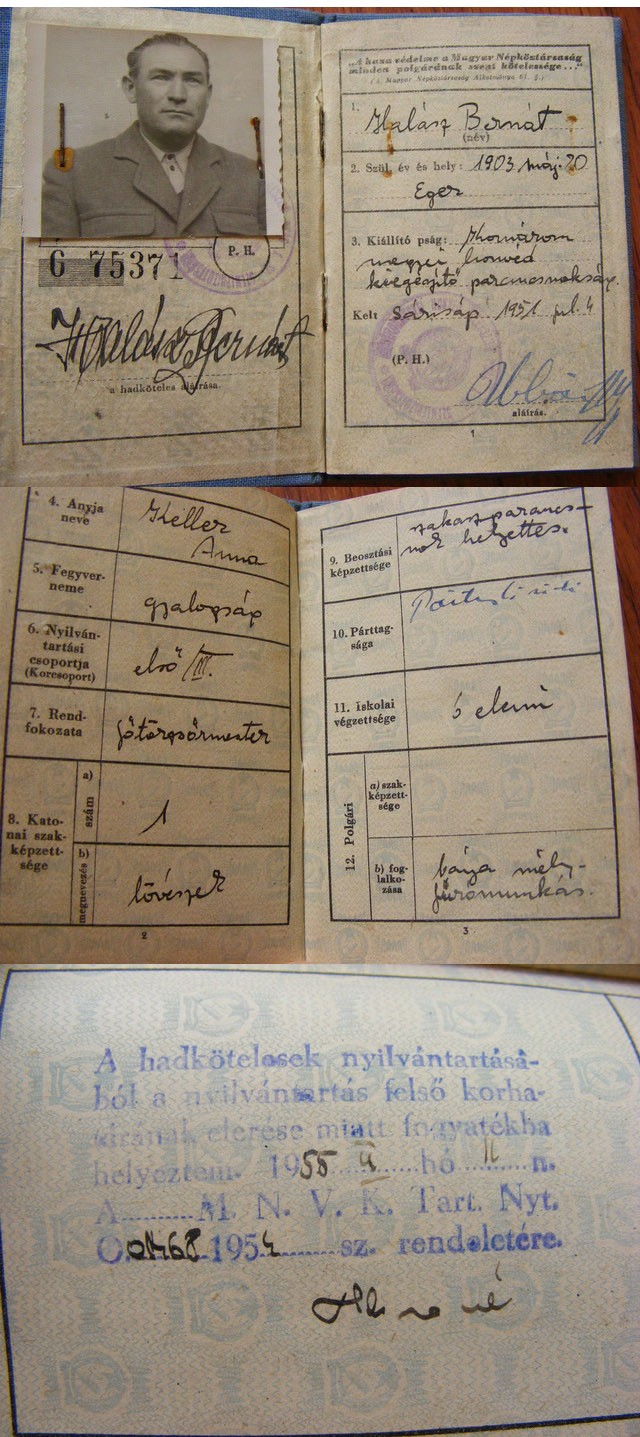 6 75371
P. H.
Halász Bernát
a hadköteles aláírása.
„A haza védelme a Magyar Népköztársaság
minden polgárának szent kötelessége...”
(A Magyar Népköztársaság Alkotmánya 61. §.)
1. Halász Bernát
(név)
2. Szül. év és hely: 1903 máj. 20
Eger
3. Kiállító pság: Komárom
megyei honvéd
kiegészítő parancsnokság.
Kelt Sárisáp 1951 jul. 4
(P. H.)
aláírás.
1
4. Anyja
neve
Keller
Anna
5. Fegyver-
neme
gyalogság
6. Nyilván-
tartási
csoportja
(Korcsoport)
első/III.
7. Rend-
fokozata
főtörzsőrmester
8. Kato-
nai szak-
képzett-
sége
a)
szám
1
b)
megnevezés
lövészek
2
9. Beosztási
képzettsége
szakaszparancs-
nok helyettes.
10. Párttag-
sága
11. Iskolai
végzettsége
6 elemi
12. Polgári
a) szak-
képzett-
sége
b) fog-
lalko-
zása
bánya mély-
fúrómunkás.
3
A hadkötelesek nyilvántartásá-
ból a nyilvántartás felső korha-
tárának elérése miatt fogyatékba
helyeztem. 1955 II hó 11 n.
A M. N. V. K. Tart. Nyt.
O. 0468 1954 sz. rendeletére.